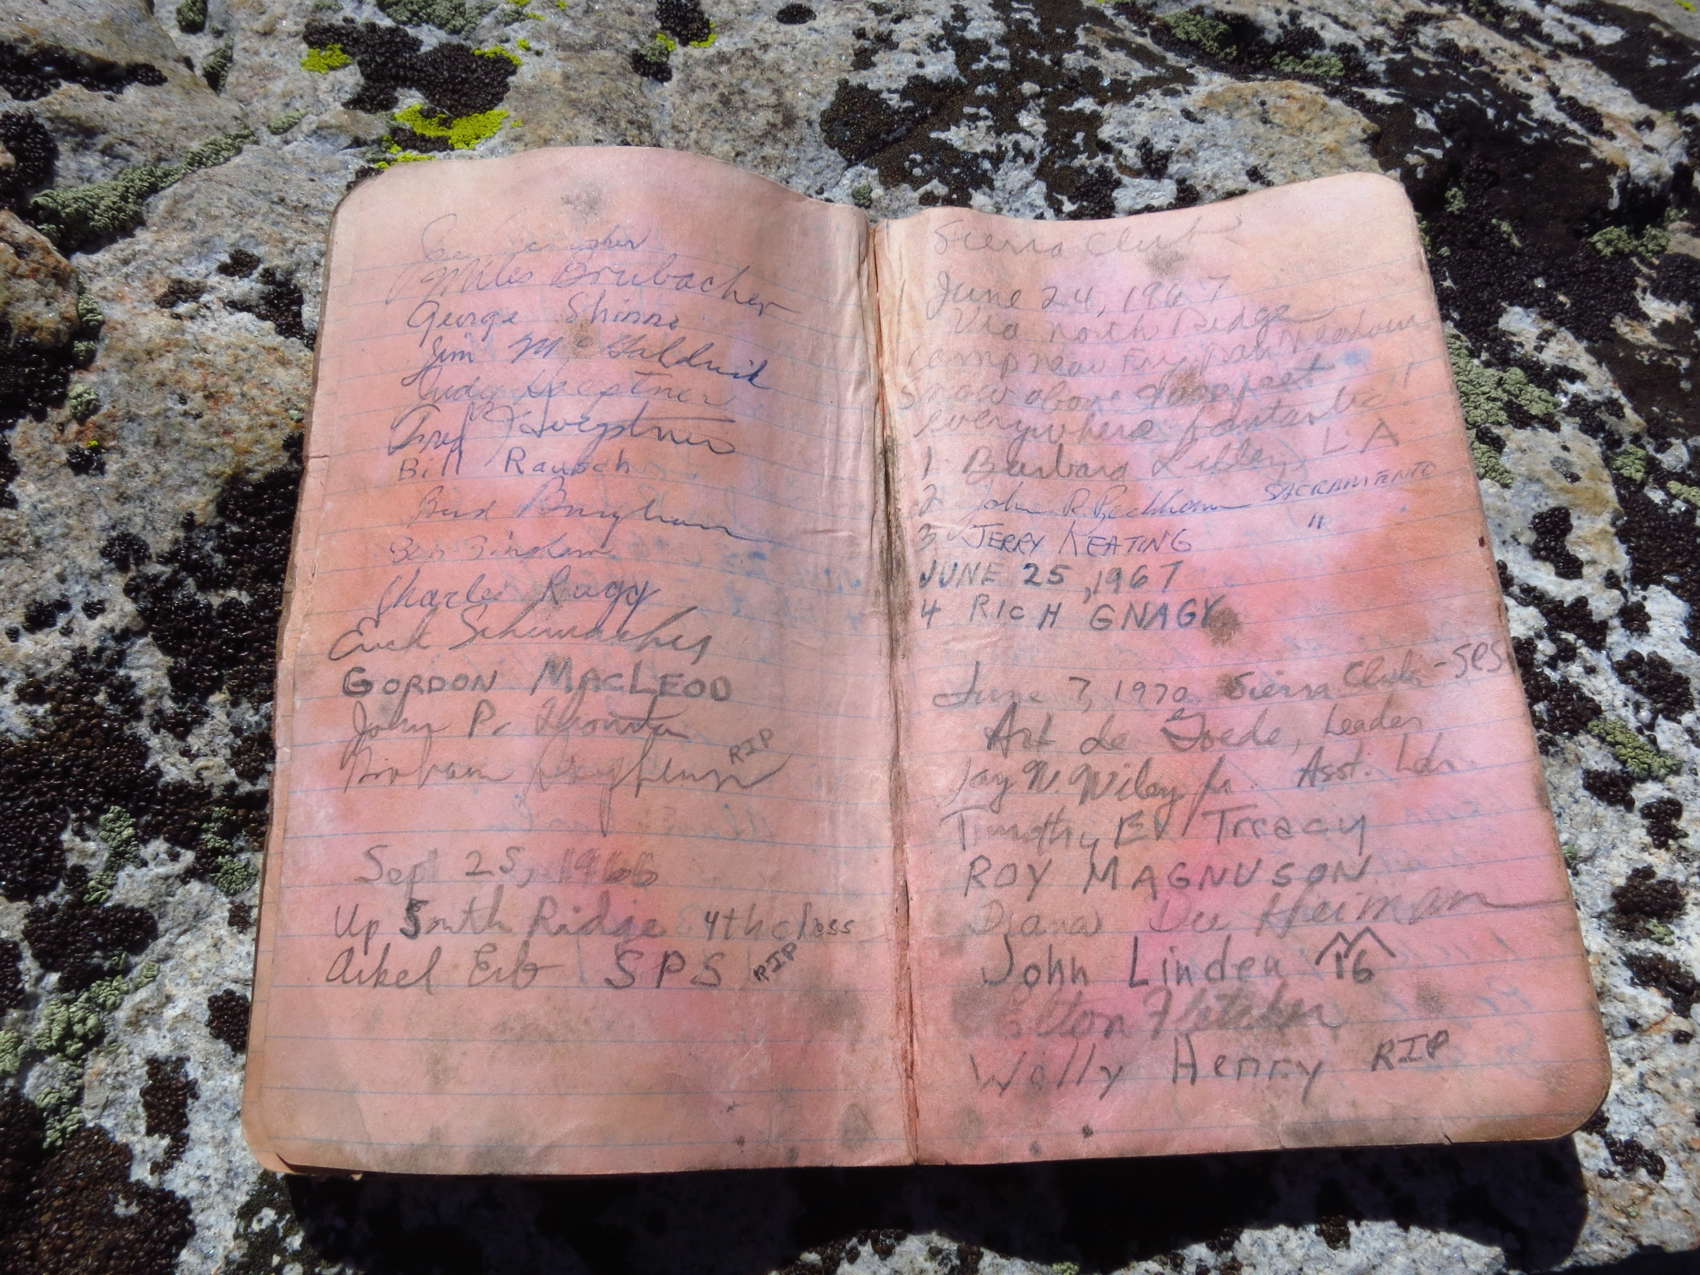 Miles Brubacher
George Shinno
Jim McGaldrick
Judy
Fred
Bill Rausch
Bud Bingham
Ben Bingham
Charles Rugg
Erick Schumacher
GORDON MACLEOD
John P.
RIP
Sept 25, 1966
Up South Ridge 4th class
Arkel Erb SPS RIP
Sierra Club
June 24, 1967
Via North Ridge
camp near Frypan Meadow
snow above 9000 feet
everywhere fantastic!!
1 Barbara Lilley, LA
2 John R. Beckham SACRAMENTO
3 JERRY KEATING "
JUNE 25, 1967
4 RICH GNAGY
June 7, 1970 Sierra Club - SPS
Art de Goede, Leader
Jay N. Wiley Jr. Asst. Ldr.
Timothy Ev Treacy
ROY MAGNUSON
Diana Dee Heiman
John Linden 16
Fletcher
Wally Henry RIP